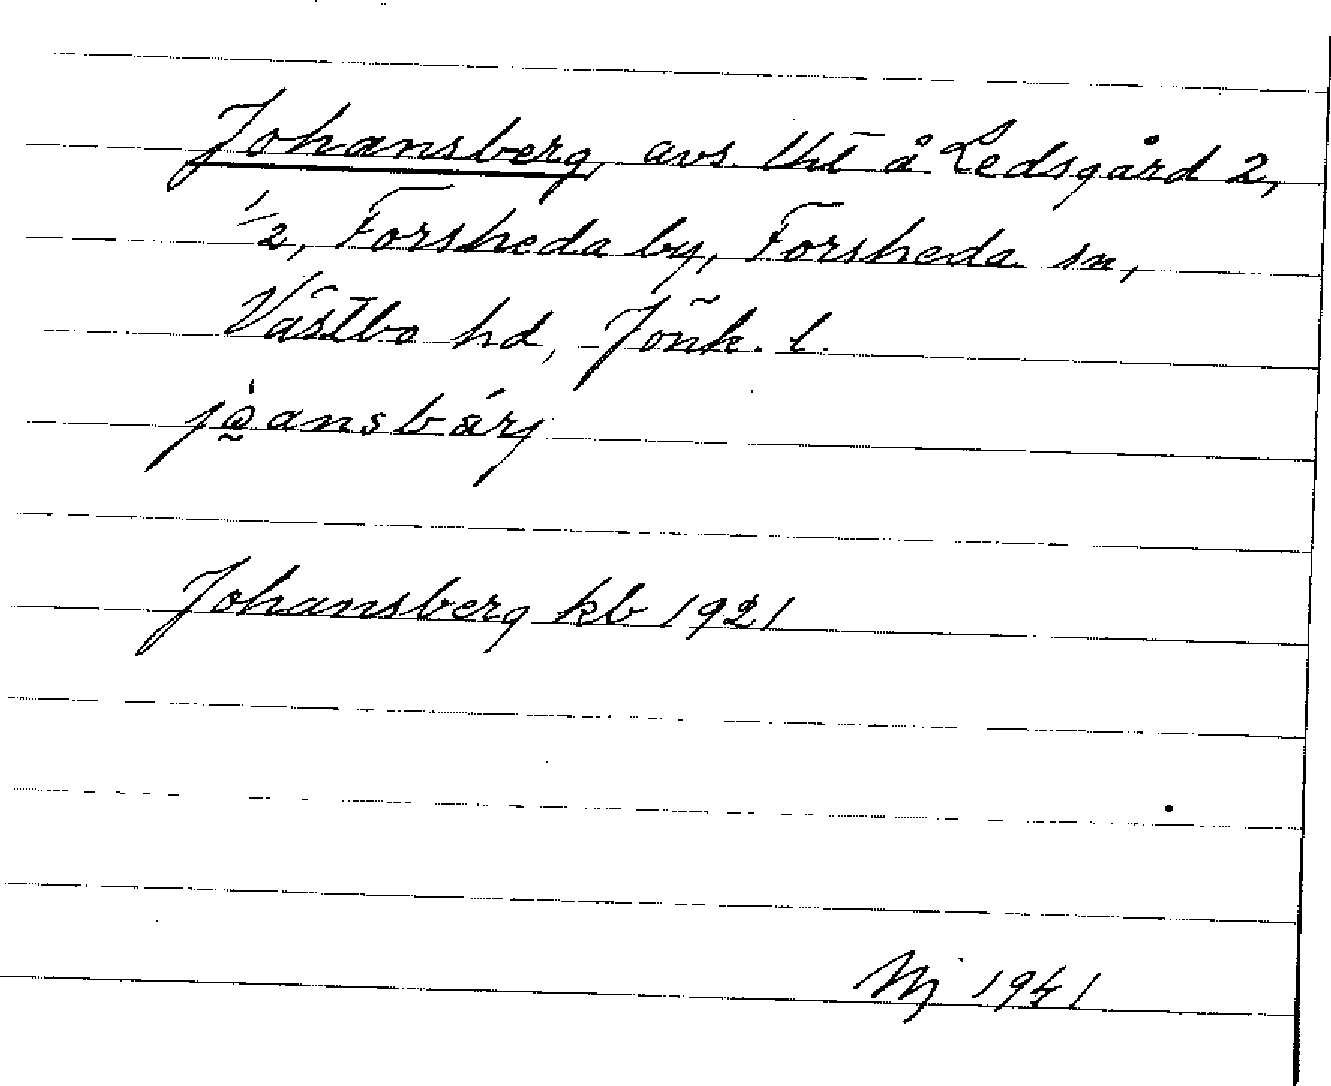 Johansberg, avs. lht å Ledsgård 2,
1/2, Forsheda by, Forsheda sn,
Västbo hd, Jönk. l.
Johansberg kb 1921
Nj 1941